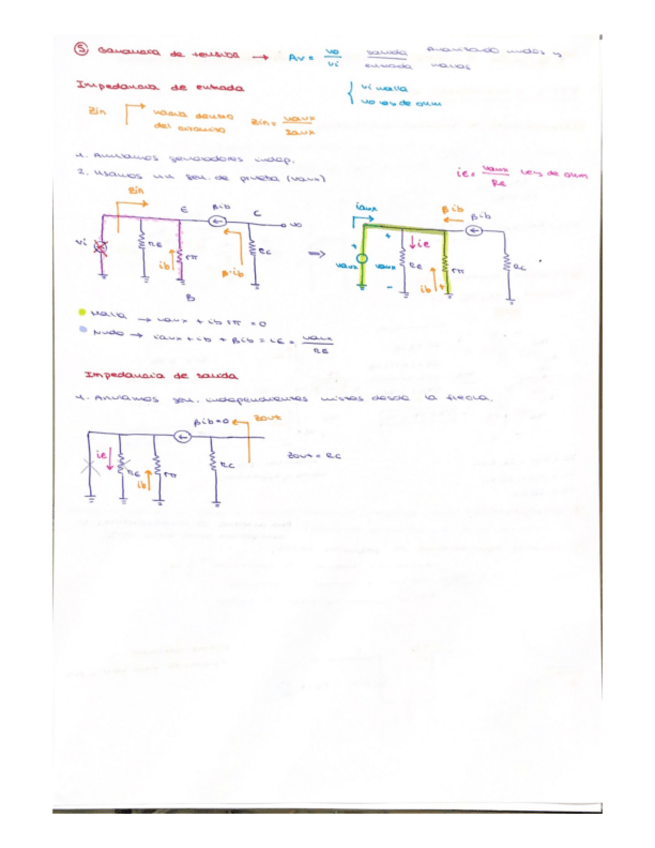 ⑤ Ganancia de tensión → Av = vo/vi salida/entrada Analizando nudos y mallas
Impedancia de entrada
{ vi malla
vo ley de ohm
Zin hacia dentro del circuito Zin = vaux/iaux
1. Anulamos generadores indep.
2. Usamos un gen. de prueba (vaux)
ie = vaux/RE Ley de ohm
Zin
E βib C vo
vi RE ib rπ β·ib RC
B
⇒
iaux βib βib
+ + ie
vaux vaux RE rπ RC
- ib +
Malla → vaux + ib rπ = 0
Nudo → iaux + ib + βib = ie = vaux/RE
Impedancia de salida
1. Anulamos gen. independientes vistos desde la flecha.
βib=0 Zout
ie RE ib rπ RC
Zout = RC